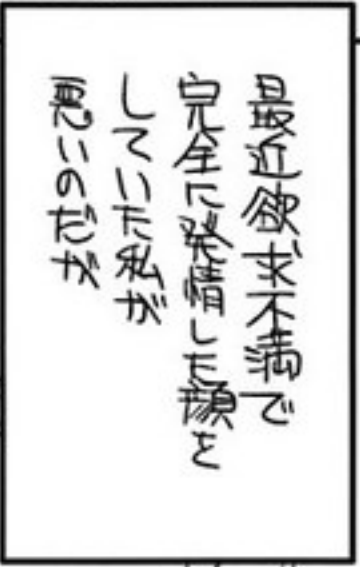 最近欲求不満で
完全に発情した顔を
していた私が
悪いのだが